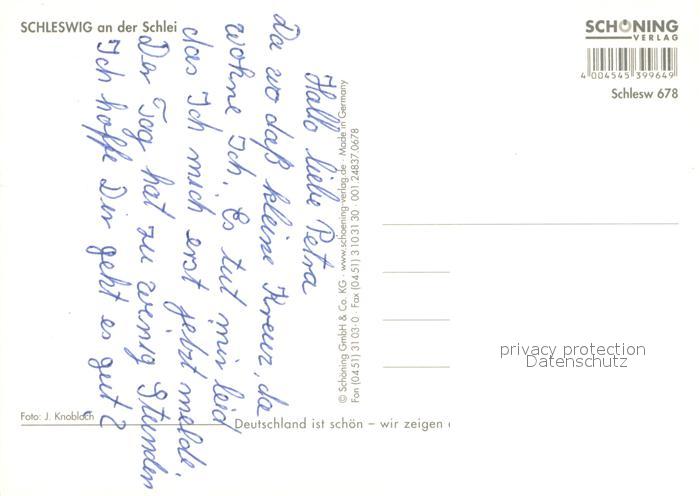 SCHLESWIG an der Schlei
Hallo liebe Petra
Da wo daß kleine Kreuz, da
wohne Ich. Es tut mir leid
das Ich mich erst jetzt melde.
Der Tag hat zu wenig Stunden
Ich hoffe Dir geht es gut?
Foto: J. Knobloch
Deutschland ist schön – wir zeigen
© Schöning GmbH & Co. KG · www.schoening-verlag.de · Made in Germany
Fon (04 51) 31 03-0 · Fax (04 51) 3 10 31 30 · 001.24837.0678
SCHÖNING
VERLAG
4 004545 399649
Schlesw 678
privacy protection
Datenschutz